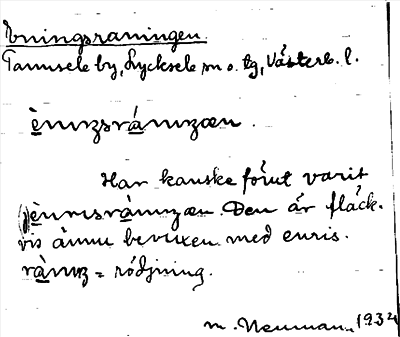 Eningsraningen.
Tannsele by, Lycksele sn o. tg, Västerb. l.
ènıŋsràniŋæn.
Har kanske förut varit
ènrısràniŋæn. Den är fläck-
vis ännu bevuxen med enris.
ràniŋ = rödjning.
M. Neuman 1934